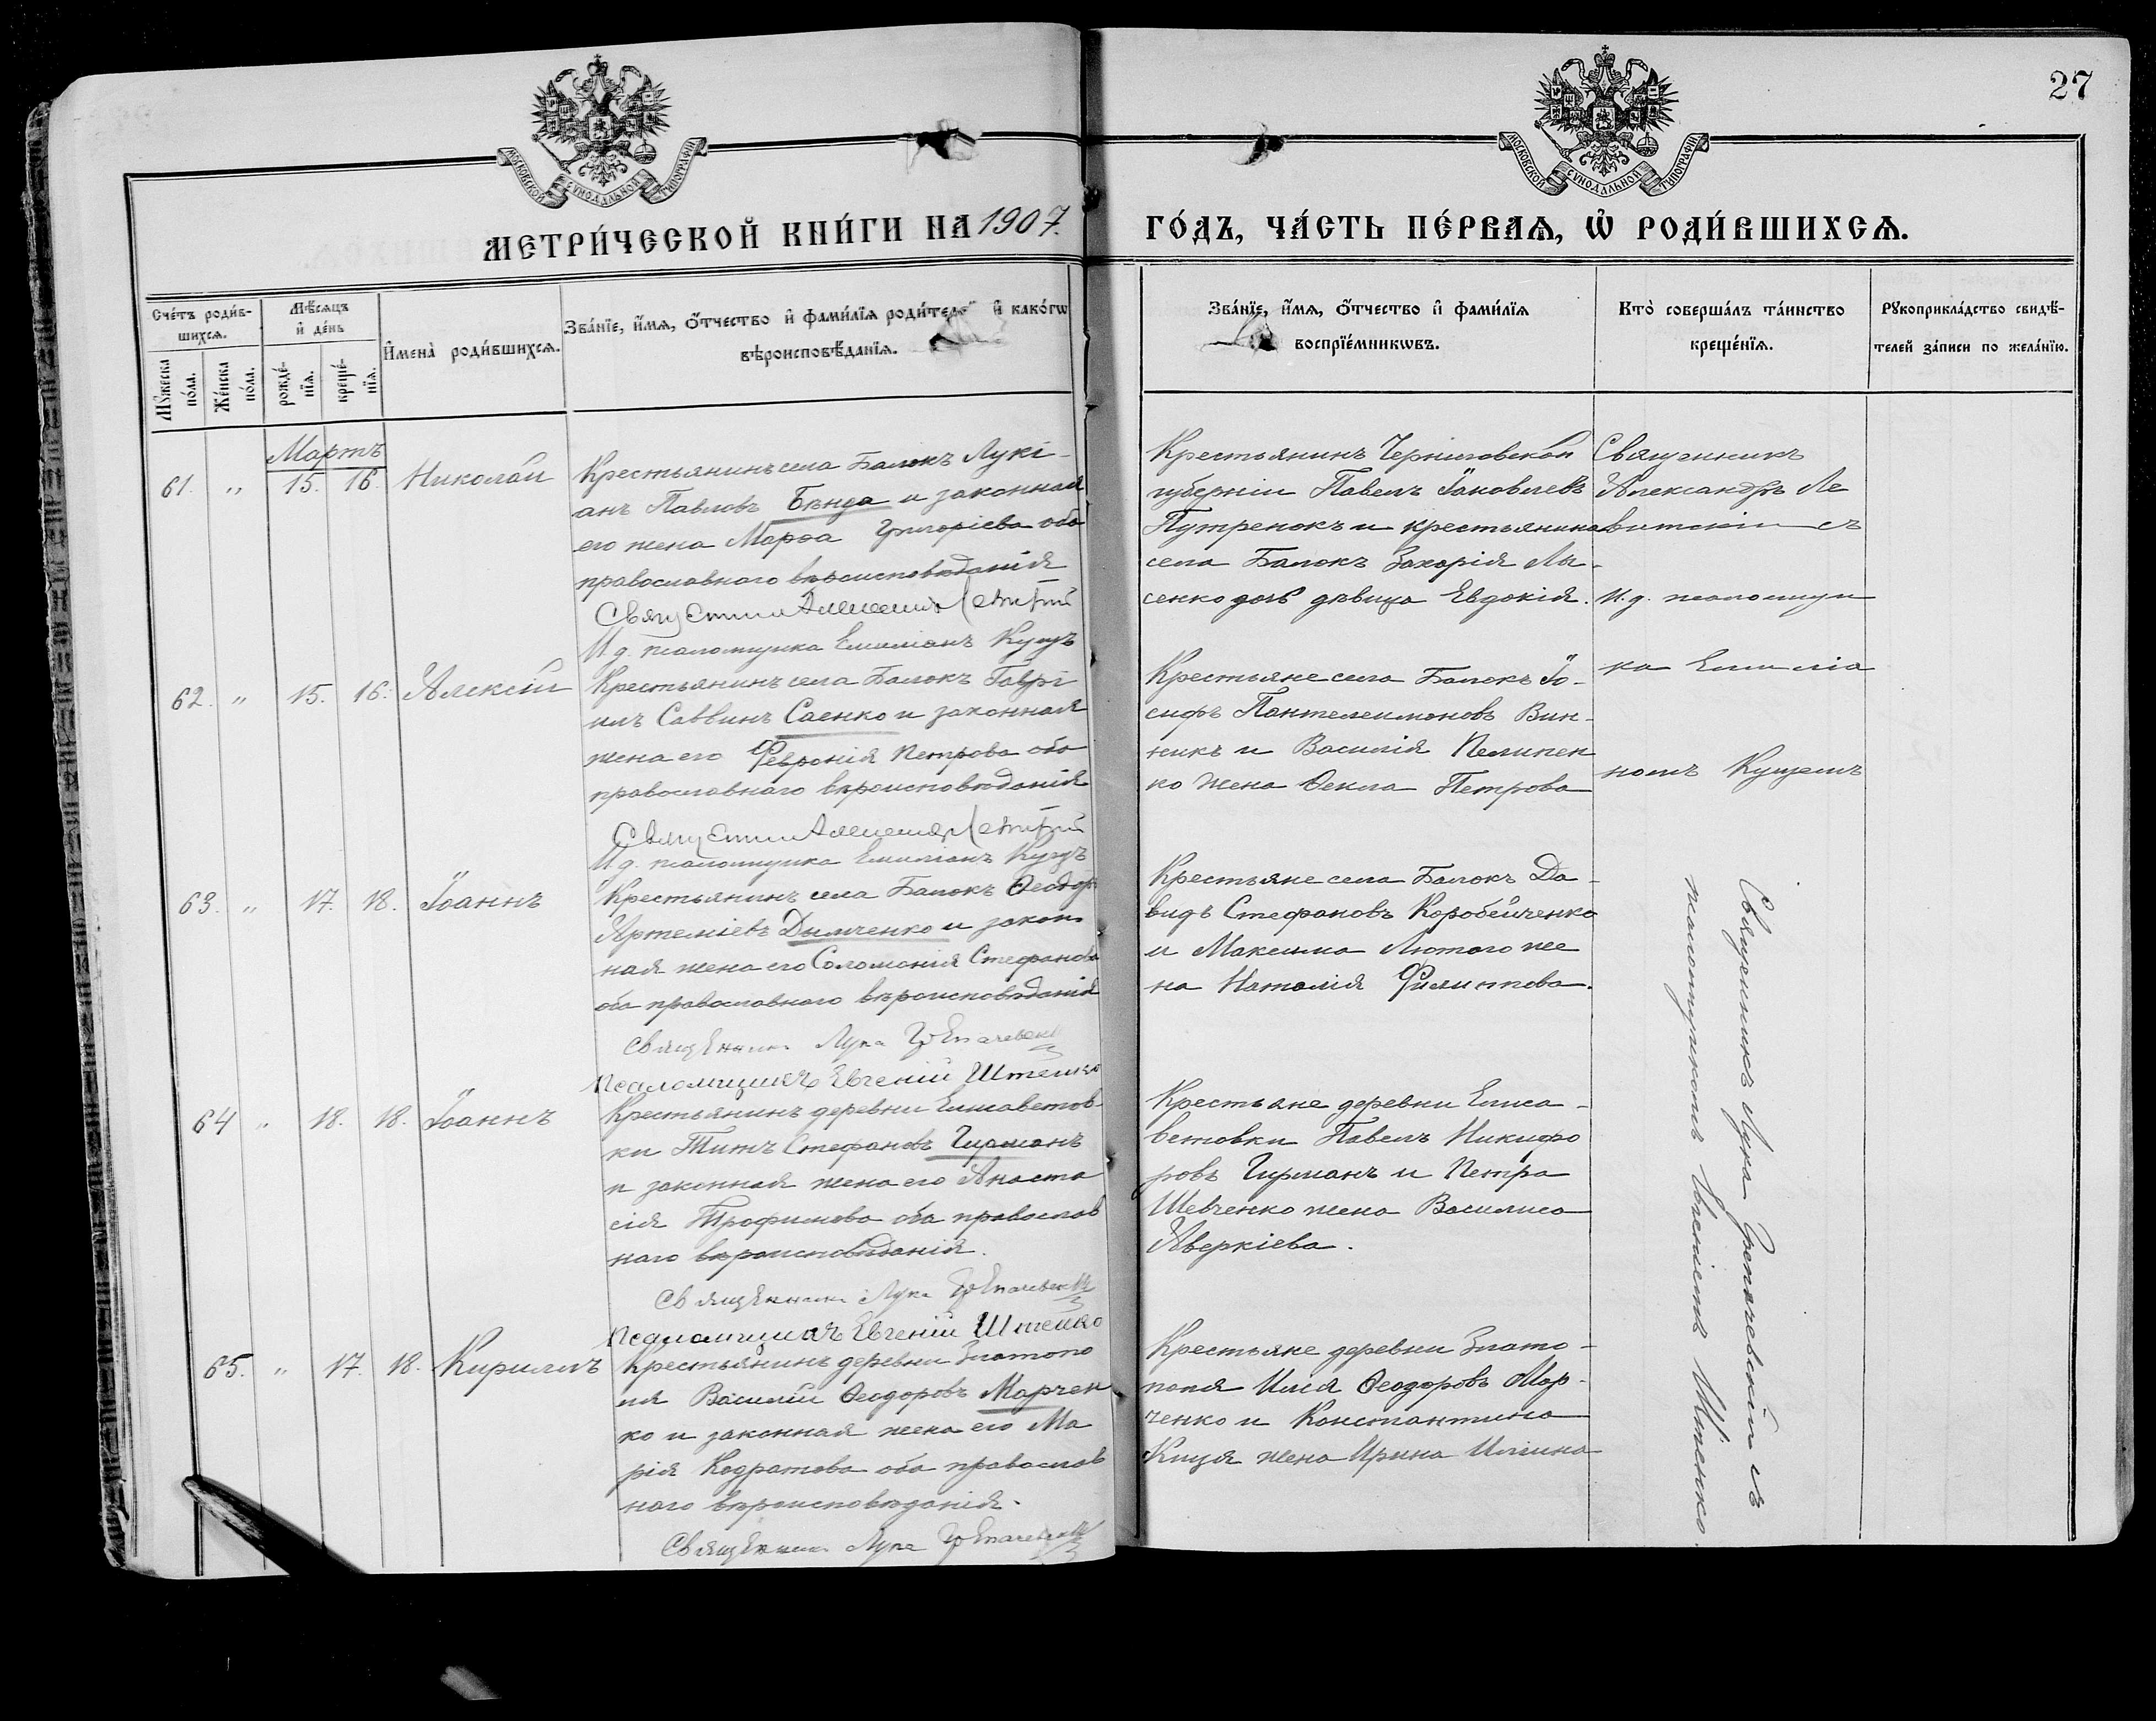 27
МОСКОВСКОЙ СѴНОДАЛЬНОЙ ТѴПОГРАФІИ
МОСКОВСКОЙ СѴНОДАЛЬНОЙ ТѴПОГРАФІИ
МЕТРИ́ЧЕСКОЙ КНИ́ГИ НА 1907.
ГО́ДЪ, ЧА́СТЬ ПЕ́РВАѦ, Ѡ҆ РОДИ́ВШИХСѦ.
Сче́тъ роди́в-
шихсѧ.
Мꙋ́жеска по́ла.
Же́нска по́ла.
Мѣ́сѧцъ
и҆ де́нь
рожде́-
нїѧ.
креще́-
нїѧ.
И҆мена̀ роди́вшихсѧ.
Зва́нїе, и҆́мѧ, о҆́тчество и҆ фами́лїѧ роди́теле и҆ како́гѡ
вѣроисповѣ́данїѧ.
Зва́нїе, и҆́мѧ, о҆́тчество и҆ фами́лїѧ
воспрїе́мникѡвъ.
Кто̀ соверша́лъ та́инство
креще́нїѧ.
Рꙋкоприкла́дство свидѣ́-
телей за́писи по жела́нїю.
Мартъ
61. " 15. 16. Николай
Крестьянинъ села Балокъ Лукі-
анъ Павловъ Бѣнда и законная
его жена Марѳа Григоріева оба
православнаго вѣроисповѣданія
И.д. псаломщика Емиліанъ Кущъ
Крестьянинъ Черниговской
губерніи Павелъ Іаковлевъ
Путренокъ и крестьянина
села Балокъ Захарія Лы-
сенко дочь дѣвица Евдокія.
Священникъ
Александръ Ле
витскій съ
И.д. псаломщи
ка Емилiа
номъ Кущемъ
62. " 15. 16. Алексій
Крестьянинъ села Балокъ Гаврі
илъ Саввинъ Саенко и законная
жена его Февронія Петрова оба
православнаго вѣроисповѣданія
И.д. псаломщика Емиліанъ Кущъ
Крестьяне села Балокъ Іо-
сифъ Пантелеимоновъ Вин-
никъ и Василія Пелипен
ко жена Ѳекла Петрова
63. " 17. 18. Іоаннъ
Крестьянинъ села Балокъ Ѳеодоръ
Артеміевъ Дымченко и закон
ная жена его Соломонія Стефанова
оба православнаго вѣроисповѣданія
Священникъ Лука
Псаломщикъ Евгеній Штепко
Крестьяне села Балокъ Да-
видъ Стефановъ Коробейченко
и Максима Лютого же
на Наталія Филиппова.
64 " 18. 18. Іоаннъ
Крестьянинъ деревни Елисаветов-
ки Титъ Стефановъ Гирманъ
и законная жена его Анаста
сія Трофимова оба православ
наго вѣроисповѣданія.
Священникъ Лука
Псаломщикъ Евгеній Штепко
Крестьяне деревни Елиса-
ветовки Павелъ Никифо
ровъ Гирманъ и Петра
Шевченко жена Василиса
Аверкіева.
65. " 17. 18. Кириллъ
Крестьянинъ деревни Златопо
ля Василій Ѳеодоровъ Марчен
ко и законная жена его Ма
рія Кодратова оба православ
наго вѣроисповѣданія.
Священникъ Лука
Крестьяне деревни Злато-
поля Илія Ѳеодоровъ Мар-
ченко и Константина
Куця жена Ирина Иліина
Священникъ Лука Грепачевскій съ
псаломщикомъ Евгеніемъ Штепко.